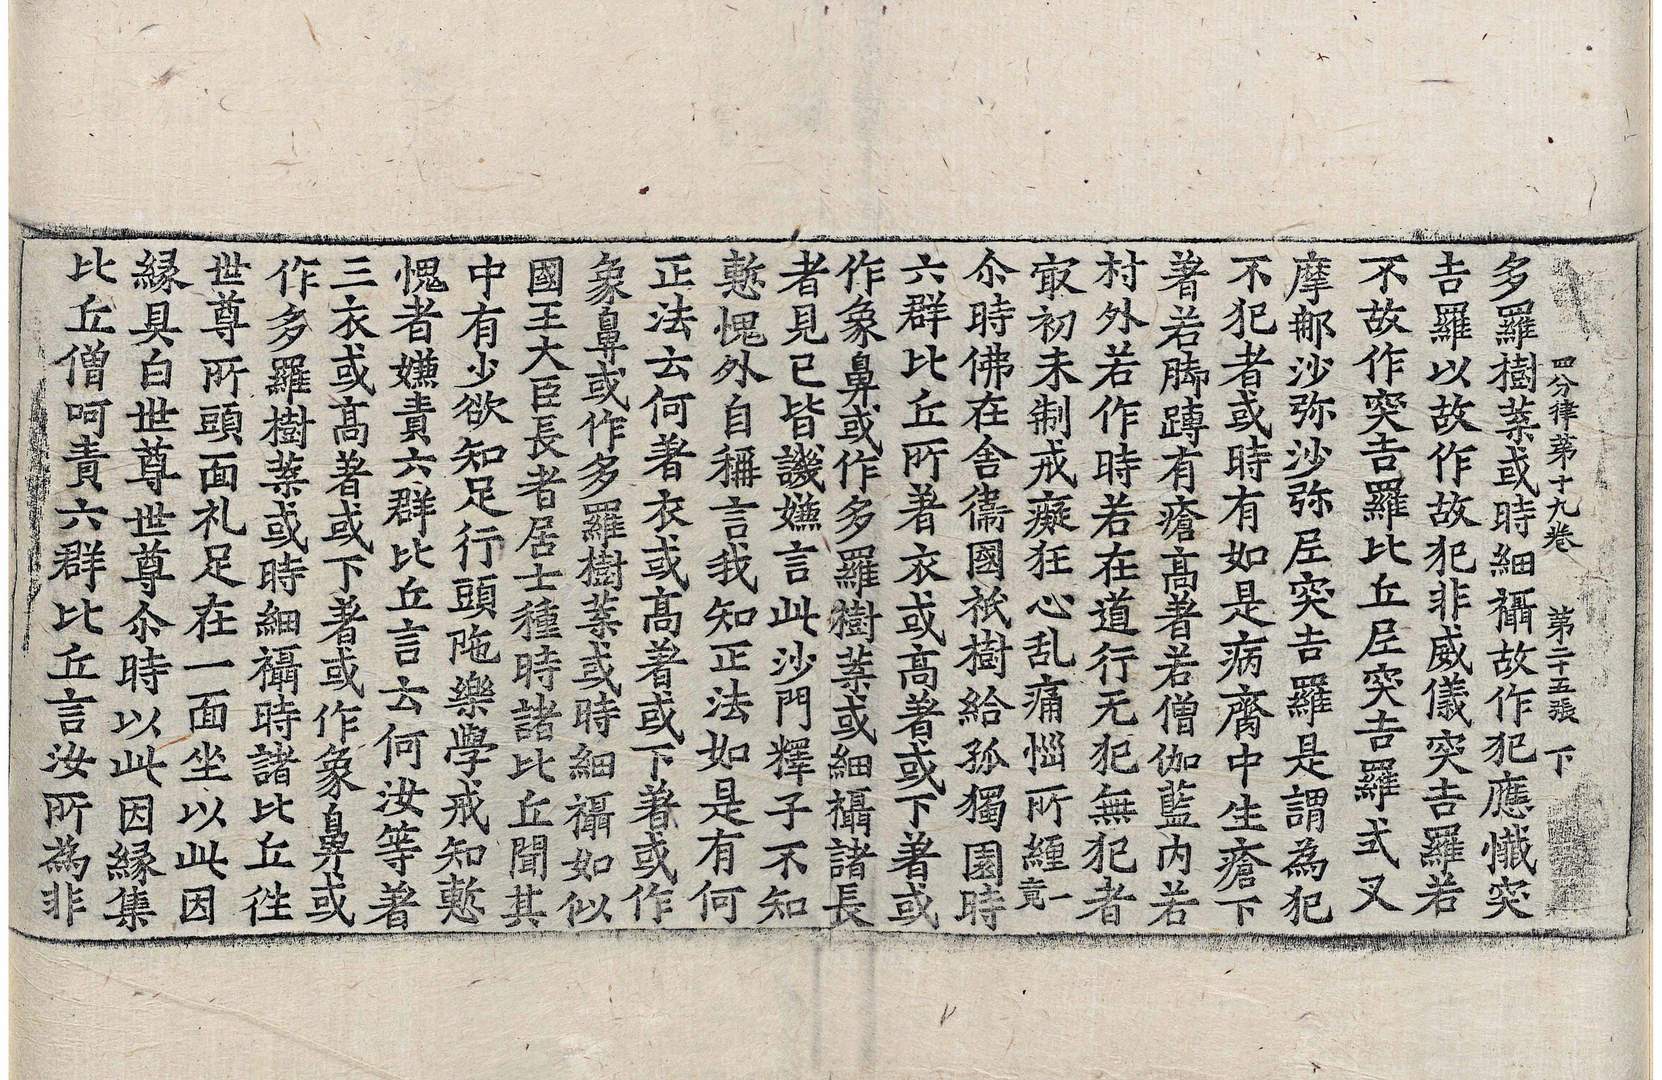 四分律苐十九卷 第二十五張 下
多羅樹葉或時細襵故作犯應懺突
吉羅以故作故犯非威儀突吉羅若
不故作突吉羅比丘尼突吉羅式叉
摩那沙弥沙弥尼突吉羅是謂為犯
不犯者或時有如是病齊中生瘡下
著若脚蹲有瘡高著若僧伽藍内若
村外若作時若在道行无犯無犯者
㝡初未制戒癡狂心乱痛惱所纏一竟
尒時佛在舍衞國祇樹給孤獨園時
六群比丘所著衣或高著或下著或
作象鼻或作多羅樹葉或細襵諸長
者見已皆譏嫌言此沙門釋子不知
慙愧外自稱言我知正法如是有何
正法云何著衣或高著或下著或作
象鼻或作多羅樹葉或時細襵如似
國王大臣長者居士種時諸比丘聞其
中有少欲知足行頭陁樂學戒知慙
愧者嫌責六群比丘言云何汝等著
三衣或高著或下著或作象鼻或
作多羅樹葉或時細襵時諸比丘徃
世尊所頭面礼足在一面坐以此因
縁具白世尊世尊尒時以此因縁集
比丘僧呵責六群比丘言汝所為非